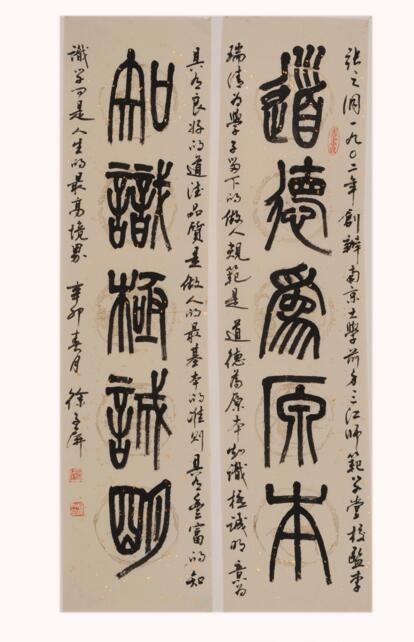 張之洞一九〇二年創辦南京大學前身三江師範学堂校監李
道德爲原本
瑞清为學子留下的做人規範是道德為原本知識極誠明意為
具有良好的道德品質是做人的最基本的准则具有豐富的知
知識極誠明
識学问是人生的最高境界 辛卯春月 徐